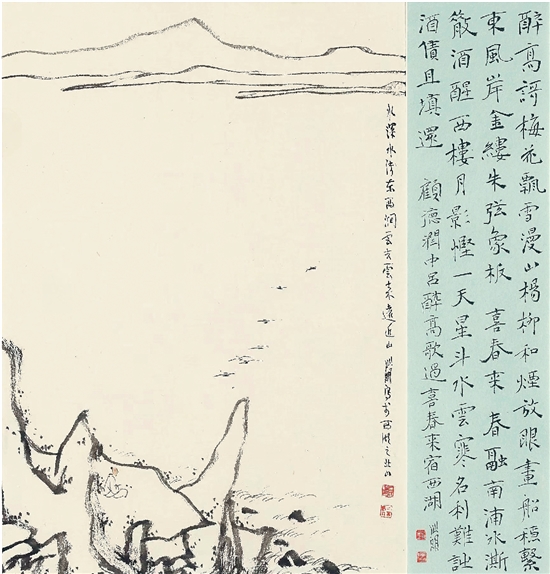 醉高謌梅花飄雪漫山楊柳和煙放眼畫船穩繫
東風岸金縷朱弦象板 喜春來 春融南浦冰澌
散酒醒西樓月影慳一天星斗水雲寒名利難詩
酒債且填還 顧德潤中呂醉高歌過喜春來宿西湖
水深水淺东西澗雲去雲来遠近山